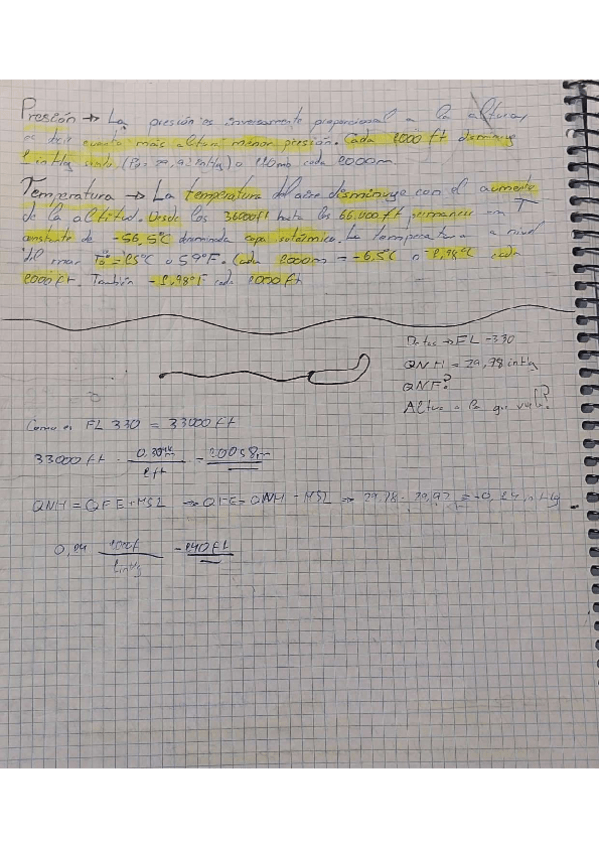 Presión → La presión es inversamente proporcional a la altura,
es decir cuanto más altura menor presión. Cada 1000 ft disminuye
1 inHg siendo (P0= 29,92 inHg) o 110mb cada 1000m.
Temperatura → La temperatura del aire disminuye con el aumento
de la altitud. Desde los 36000ft hasta los 66.000ft permanece una T
constante de -56,5°C denominada capa isotérmica. La temperatura a nivel
del mar T0 = 15°C o 59°F. Cada 1000m = -6,5C o 1,98°C cada
1000ft. También -1,98°F cada 1000ft
Datos → FL-330
QNH = 29,78 inHg
QNF?
Altura a la que vuela?
Como es FL 330 = 33000ft
33000ft · 0,3048m / 1ft = 10058m
QNH = QFE + MSL → QFE = QNH - MSL → 29,78 - 29,92 = -0,14 inHg
0,14 1000ft / 1inHg = 140FL